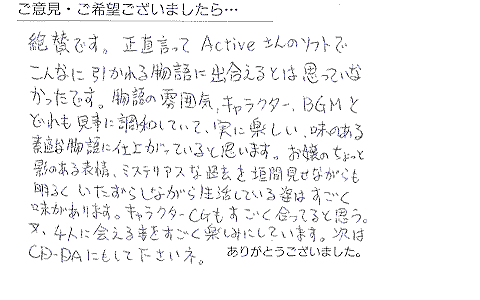 ご意見・ご希望ございましたら…
絶賛です。正直言って Activeさんのソフトで
こんなに引かれる物語に出会えるとは思っていな
かったです。物語の雰囲気、キャラクター、BGMと
どれも見事に調和していて、実に楽しい、味のある
素適な物語に仕上がっていると思います。お嬢のちょっと
影のある表情、ミステリアスな過去を垣間見せながらも
明るくいたずらしながら生活している姿はすごく
味があります。キャラクターCGもすごく合ってると思う。
又、4人に会える事をすごく楽しみにしています。次は
CD-DAにもして下さいネ。 ありがとうございました。